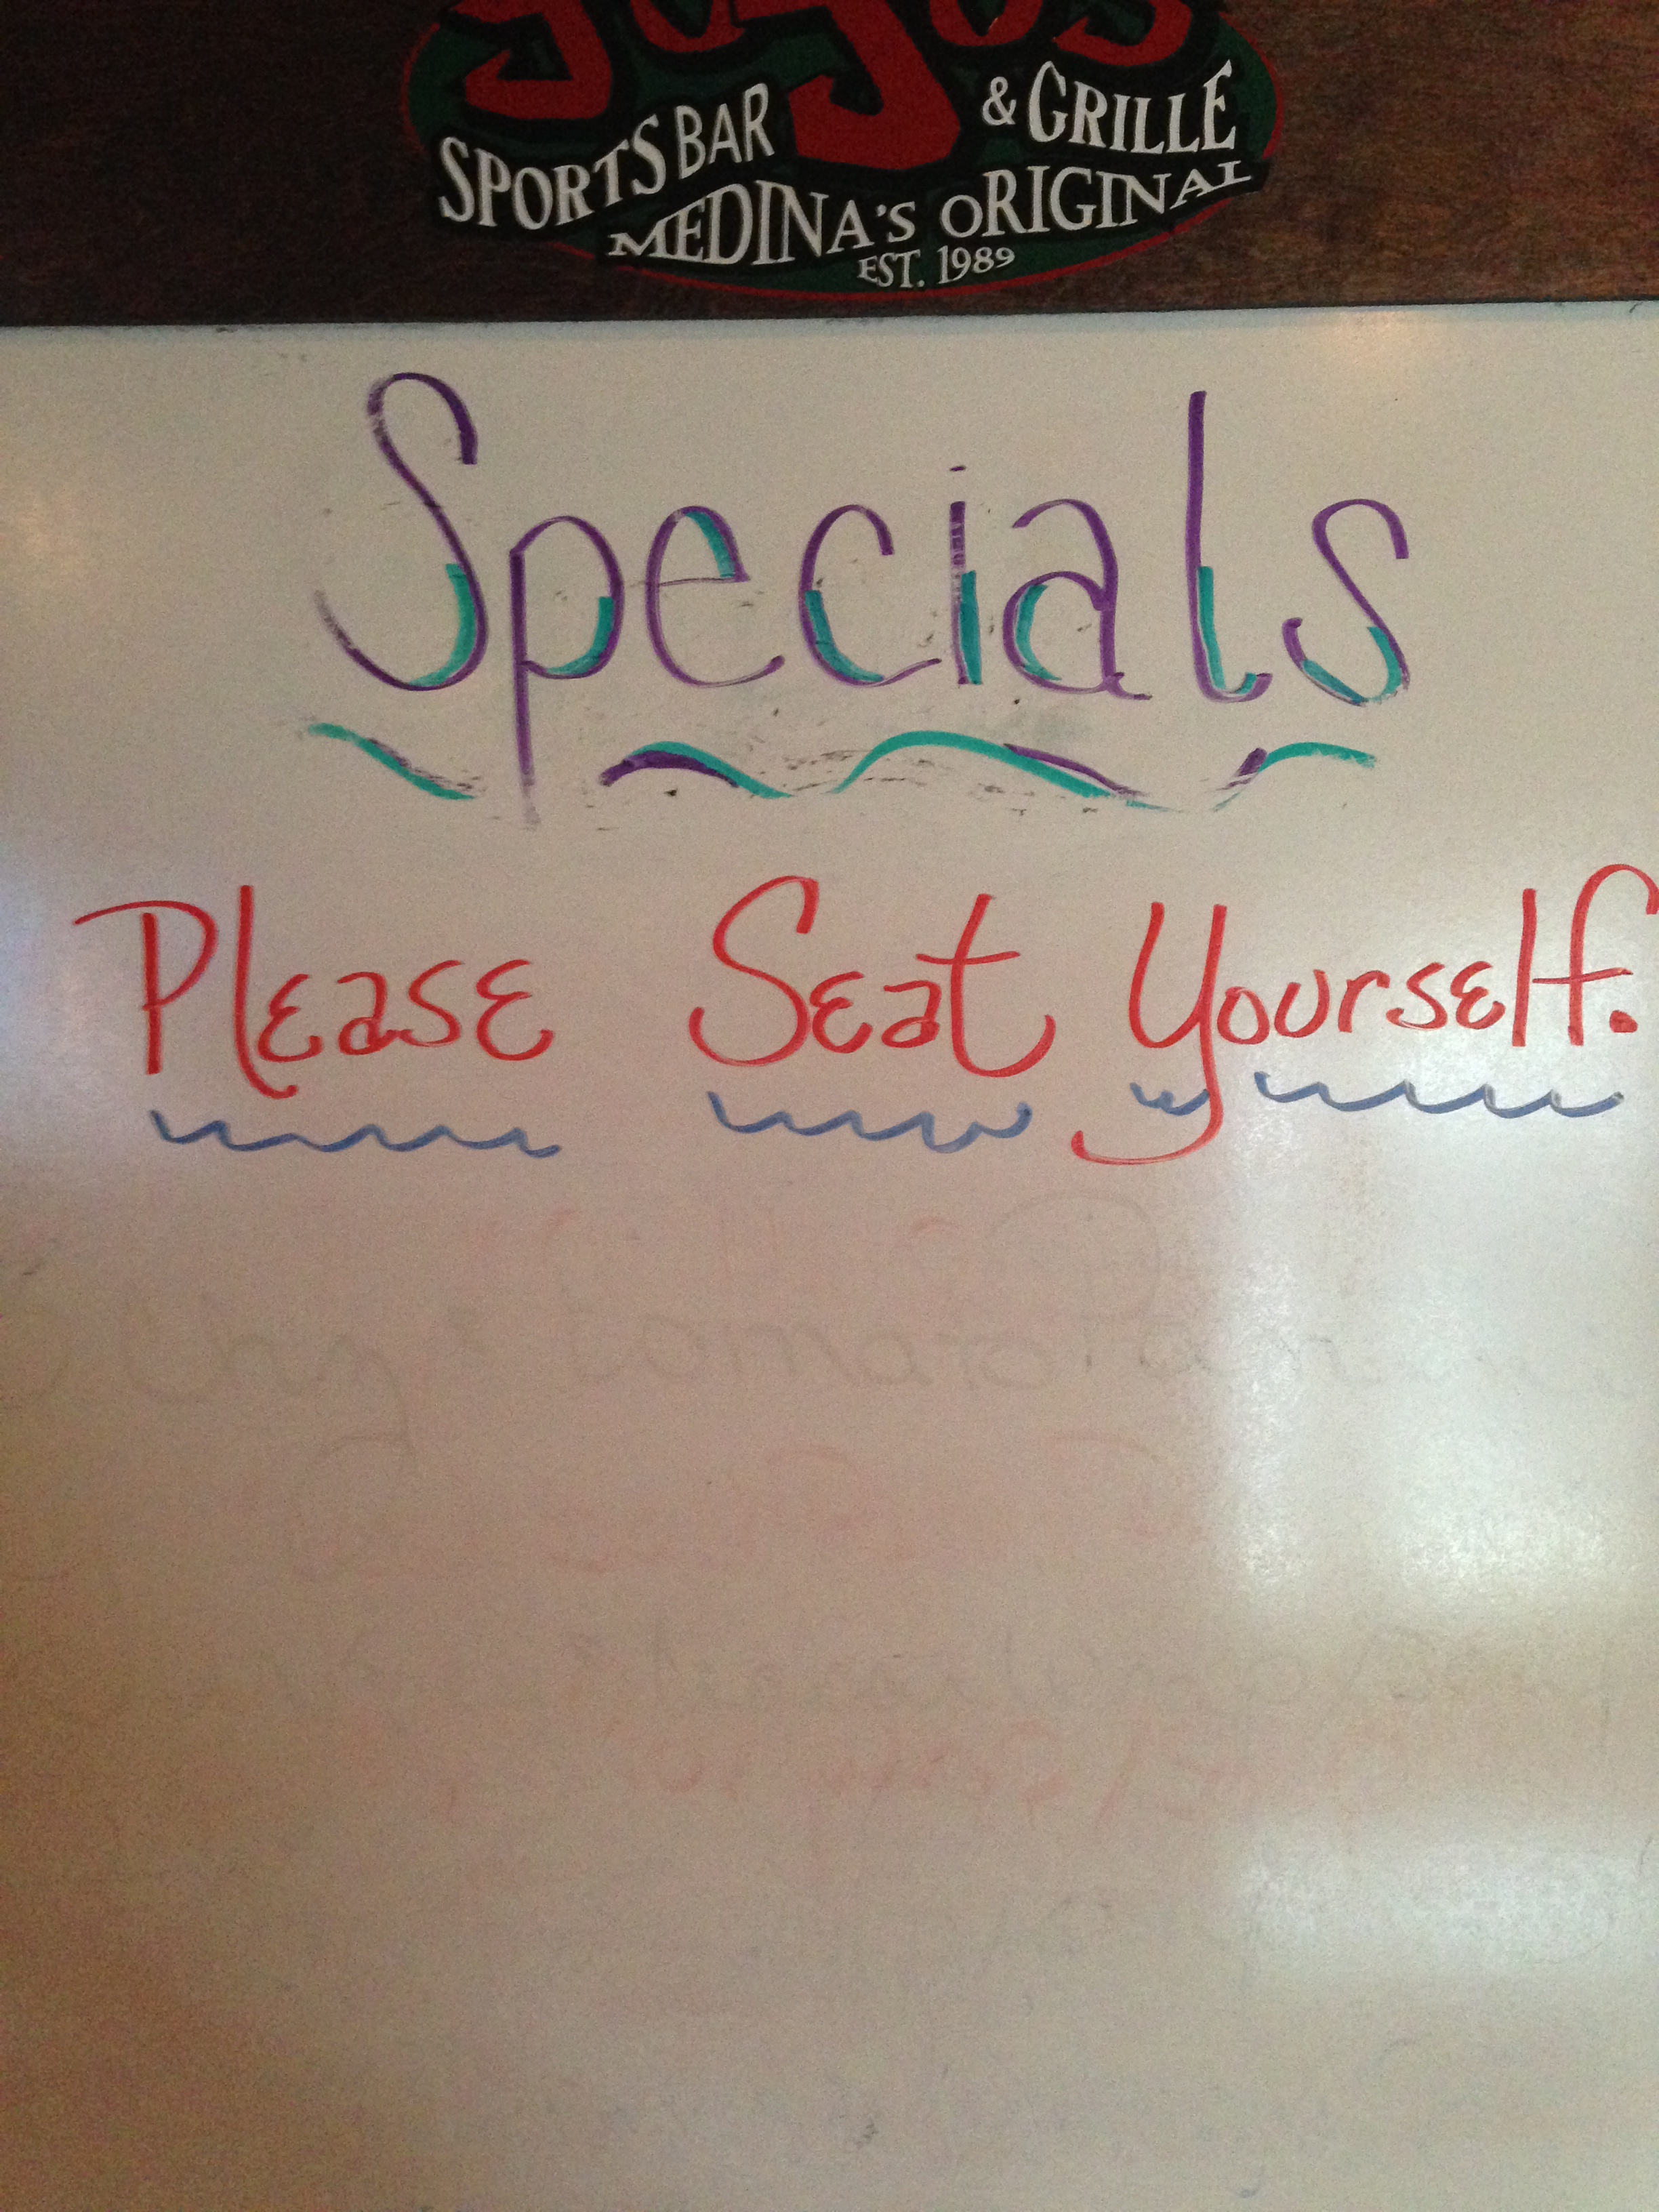 JoJo's
SPORTS BAR & GRILLE
MEDINA'S ORIGINAL
EST. 1989
Specials
Please Seat Yourself.